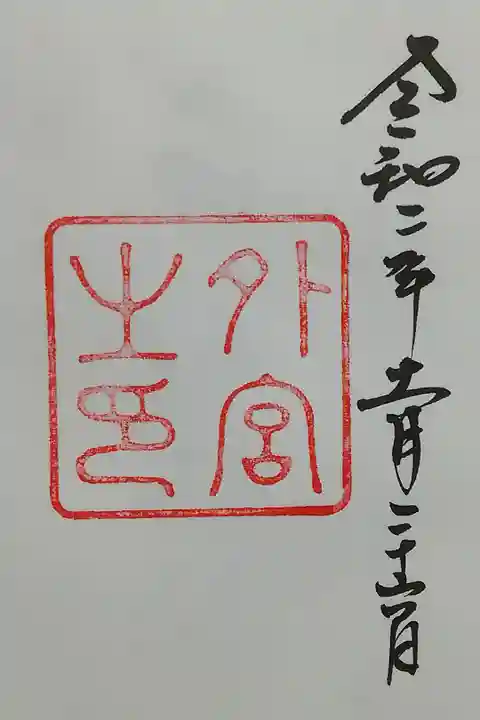 令和二年十一月二十日
外宮
之印